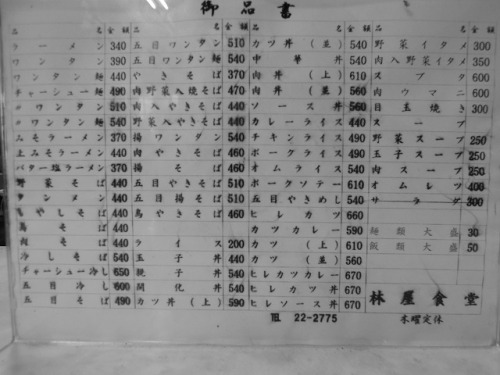 御品書
品名 金額 品名 金額 品名 金額 品名 金額
ラーメン 340
ワンタン 390
ワンタン麺 440
チャーシュー麺 490
〃ワンタン 510
〃ワンタン麺 540
みそラーメン 370
上みそラーメン 440
バター塩ラーメン 370
野菜そば 440
タンメン 440
もやしそば 440
鳥そば 440
肉そば 440
冷しそば 540
チャーシュー冷し 650
五目冷し 600
五目そば 490
五目ワンタン 510
五目ワンタン麺 540
やきそば 370
肉野菜入焼そば 470
肉入やきそば 440
野菜入やきそば 440
揚ワンタン 540
肉やきそば 460
揚そば 460
五目やきそば 510
五目揚そば 510
鳥やきそば 460
ライス 200
玉子丼 440
親子丼 540
開化丼 540
カツ丼(上) 590
カツ丼(並) 540
中華丼 540
肉丼(上) 610
肉丼(並) 560
ソース丼 560
カレーライス 440
チキンライス 490
ポークライス 490
オムライス 540
ポークソテー 610
五目やきめし 540
ヒレカツ 660
カツカレー 590
カツ(上) 610
カツ(並) 560
ヒレカツカレー 670
ヒレカツ丼 670
ヒレソース丼 670
野菜イタメ 300
肉入野菜イタメ 350
スブタ 600
肉ウマニ 600
目玉焼き 300
スープ
野菜スープ 250
玉子スープ 250
肉スープ 250
オムレツ 400
サラダ 300
麺類大盛 30
飯類大盛 50
林屋食堂
木曜定休
℡ 22-2775